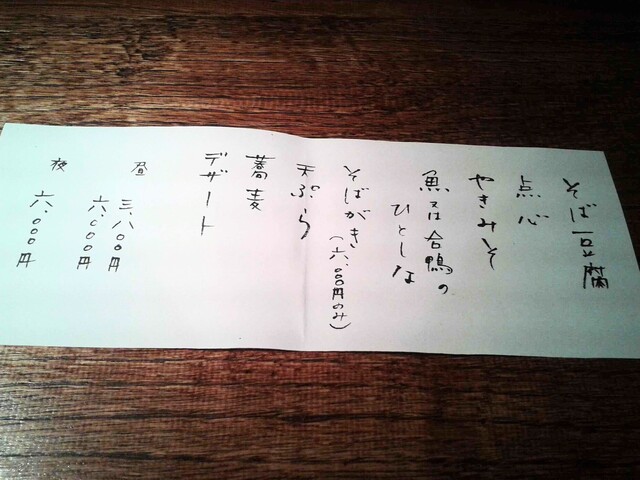 そば豆腐
点心
やきみそ
魚又は合鴨の
ひとしな
そばがき(六.〇〇〇円のみ)
天ぷら
蕎麦
デザート
昼 三.八〇〇円
六.〇〇〇円
夜 六.〇〇〇円